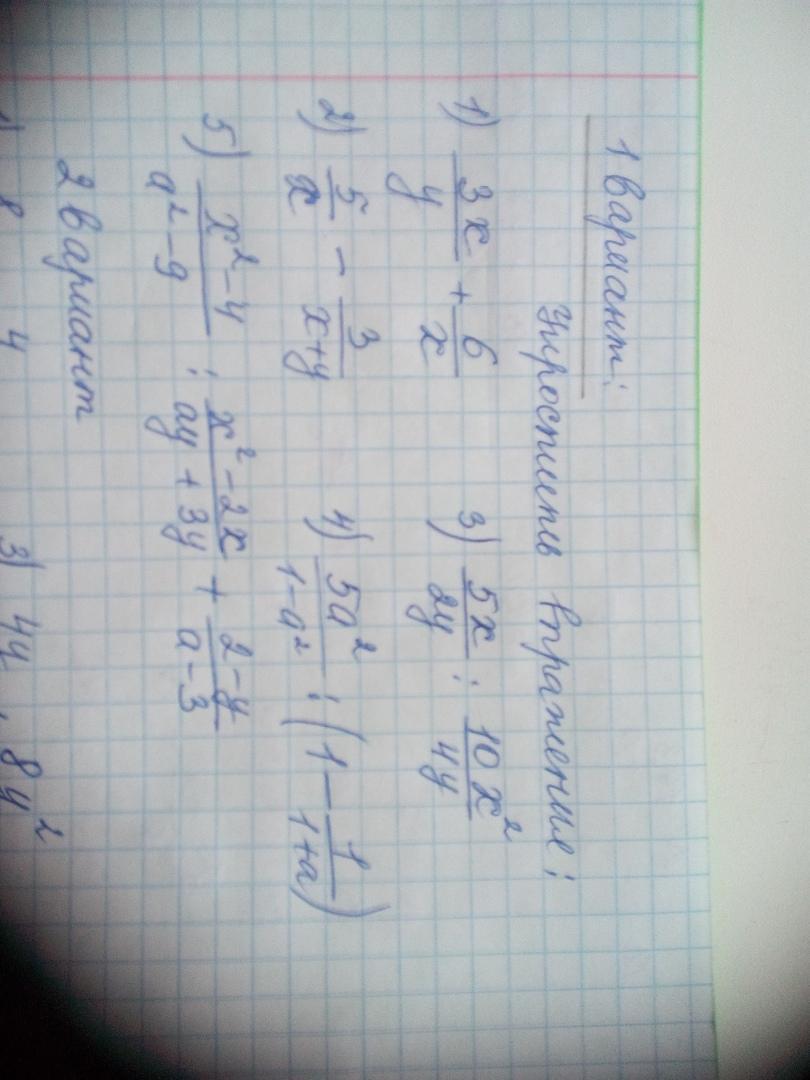 1 вариант:
Упростить выражение:
1) 3x/y + 6/x   3) 5x/2y : 10x²/4y
2) 5/x - 3/(x+y)   4) 5a²/(1-a²) : (1 - 1/(1+a))
5) (x²-4)/(a²-9) : (x²-2x)/(ay+3y) + (2-y)/(a-3)
2 вариант
1) 8 4 3) 4y 8y²